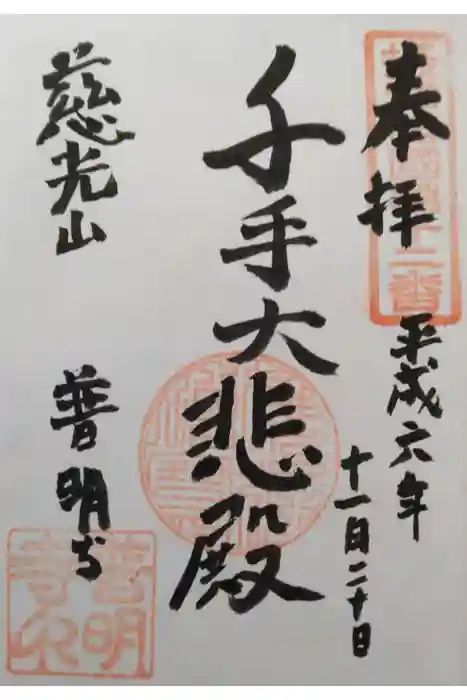 奉拝
平成六年
十一月二十日
千手大悲殿
慈光山
普明寺
普明寺印